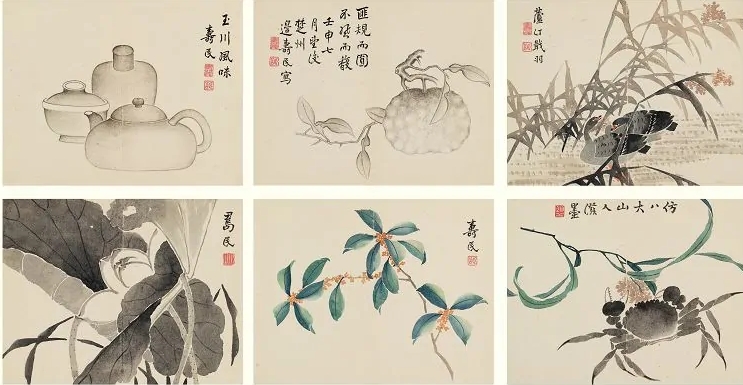 玉川風味
壽民
匪規而圓
不而馥
壬申七
月望後
楚州
邊壽民寫
蘆汀戢羽
壽民
壽民
仿八大山人潑墨